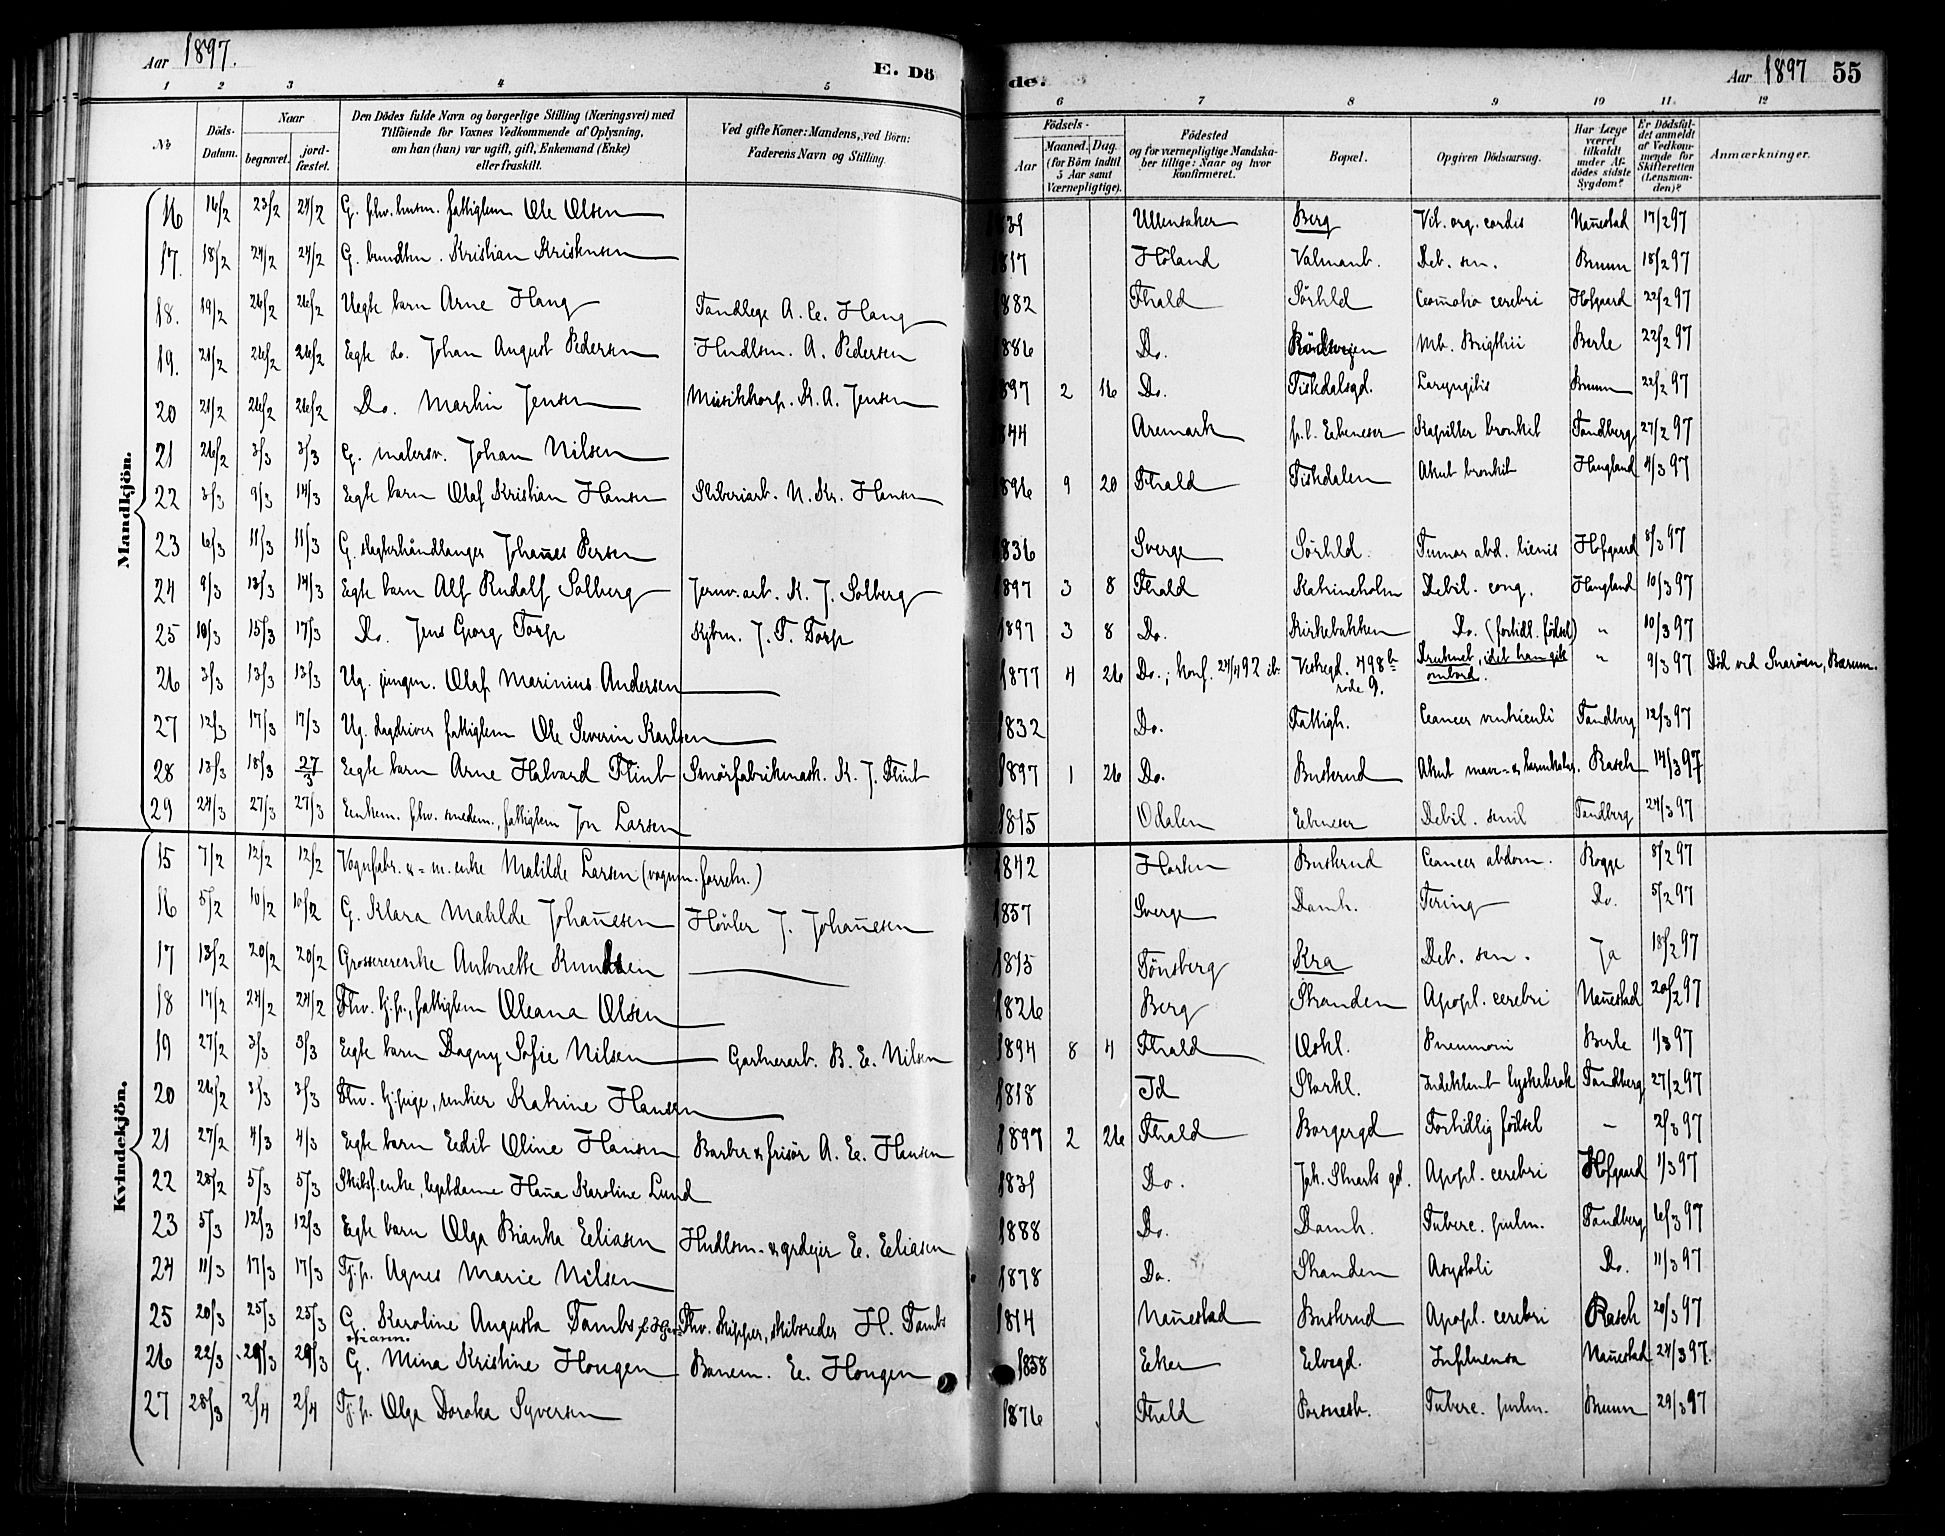 Aar 1897.
E. Dö
de.
Aar 1897 55
1 2 3 4 5 6 7 8 9 10 11 12
№
Döds-Datum.
Naar
begravet.
jord-fæstet.
Den Dödes fulde Navn og borgerlige Stilling (Næringsvei) med
Tilföiende for Voxnes Vedkommende af Oplysning,
om han (hun) var ugift, gift, Enkemand (Enke)
eller fraskilt.
Ved gifte Koner: Mandens, ved Börn:
Faderens Navn og Stilling.
Födsels-
Aar
Maaned. Dag.
(for Börn indtil
5 Aar samt
Værnepligtige).
Födested
og for værnepligtige Mandska-
ber tillige: Naar og hvor
konfirmeret.
Bopæl.
Opgiven Dödsaarsag.
Har Læge
været
tilkaldt
under Af-
dödes sidste
Sygdom?
Er Dödsfal-
det anmeldt
af Vedkom-
mende for
Skifteretten
(Lensman-
den)?
Anmærkninger.
Mandkjön.
16 16/2 23/2 24/2 G. fhv. husm. fattiglem Ole Olsen 1831 Ullensaker Berg Vit. org. cordis Nannestad 17/2 97
17. 18/2 24/2 24/2 G. Kristian Kristensen 1817 Höland Valmanb. Deb. sen. Bruun 18/2 97
18. 19/2 26/2 26/2 Uegte barn Arne Haug Tandlæge A. C. Haug 1882 Fhald Sörhld cerebri Hofgaard 22/2 97
19. 21/2 26/2 26/2 Egte do. Johan August Pedersen Hndlsm. A. Pedersen 1886 Do. Mb. Brigthii Berle 22/2 97
20 21/2 26/2 26/2 Do. Martin Jensen Musikkorp. K. A. Jensen 1897 2 16 Do. Tistedalsgd. Laryngitis Bruun 22/2 97
21 26/2 3/3 3/3 G. malersv. Johan Nilsen 1844 Aremark p. l. Ebeneser Kapillær bronkit Tandberg 27/2 97
22 3/3 9/3 14/3 Egte barn Olaf Kristian Hansen Sliberiarb. N. Kr. Hansen 1896 9 20 Fhald Tistedalen Akut bronkit Haugland 4/3 97
23 6/3 11/3 11/3 G. slagterhåndlanger Johannes Persen 1836 Sverge Sörhld. Tumor abd. lienis Hofgaard 8/3 97
24 9/3 13/3 14/3 Egte barn Alf Rudolf Solberg Jernv.arb. K. J. Solberg 1897 3 8 Fhald Katrineholm Debil. cong. Haugland 10/3 97
25 10/3 15/3 17/3 Do. Jens Georg Torp Kjbm. J. T. Torp 1897 3 8 Do. Kirkebakken Do. (fortidl. födsel) „ 10/3 97
26 3/3 13/3 13/3 Ug. jungm. Olaf Marinius Andersen 1877 4 26 Do.; konf. 24/4 92 ib. Vestregd. 498 b rode 9. Druknet, idet han gik ombord. „ 9/3 97 Död ved Snaröen, Bærum.
27 12/3 17/3 17/3 Ug. dagdriver fattiglem Ole Severin Karlsen 1832 Do. Fattigh. Cancer ventriculi Tandberg 12/3 97
28 13/3 18/3 27/3 Egte barn Arne Halvard Flint Smörfabrikmask. K. J. Flint 1897 1 26 Do. Buskrud Akut mave- & tarmkatar. Rasch 14/3 97
29 24/3 27/3 27/3 Enkem. fhv. smedem., fattiglem Jon Larsen 1815 Odalen Ebeneser Debil. senil Tandberg 24/3 97
Kvindekjön.
15 7/2 12/2 12/2 Vognfabr. & = m. enke Matilde Larsen (vognm. forretn.) 1842 Horten Buskrud Cancer abdom. Rogge 8/2 97
16 5/2 10/2 10/2 G. Klara Matilde Johannesen Hövler J. Johannesen 1857 Sverge Damh. Tering Do. 5/2 97
17 13/2 20/2 20/2 Grossererenke Antonette Knudsen 1815 Tönsberg Kra Deb. sen. Ja 18/2 97
18 17/2 24/2 24/2 Fhv. tj.p., fattiglem Oleana Olsen 1826 Berg Stranden Apopl. cerebri Nannestad 20/2 97
19 27/2 3/3 3/3 Egte barn Dagny Sofie Nilsen Gartnerarb. B. E. Nilsen 1894 8 4 Fhald Oskl. Pneumoni Berle 1/3 97
20 26/2 3/3 3/3 Fhv. tj.pige, rentier Katrine Hansen 1818 Id Starkl. Indeklemt lyskebrok Tandberg 27/2 97
21 27/2 4/3 4/3 Egte barn Edit Oline Hansen Barber & frisör A. E. Hansen 1897 2 26 Fhald Borgergd Fortidlig födsel – 2/3 97
22 28/2 5/3 5/3 Skibsf.enke, legatdame Hanna Karoline Lund 1831 Do. Joh. Stuarts gd. Apopl. cerebri Hofgaard 1/3 97
23 5/3 12/3 12/3 Egte barn Olga Bianka Eliasen Hndlsm. & grdejer E. Eliasen 1888 Do. Damh. Tuberc. pulm. Tandberg 6/3 97
24 11/3 17/3 17/3 Tj.p. Agnes Marie Nilsen 1878 Do. Stranden Asystoli Do. 11/3 97
25 20/3 25/3 25/3 G. Karoline Augusta Tambs Fhv. skipper, skibsreder H. Tambs 1814 Nannestad Buskrud Apopl. cerebri Rasch 20/3 97
26 22/3 29/3 29/3 G. Mina Kristine Hougen Banem. E. Hougen 1858 Eker Elvegd. Influensa Nannestad 24/3 97.
27 28/3 2/4 2/4 Tj.p. Olga Dorotea Syversen 1876 Fhald Porsnesb. Tuberc. pulm. Bruun 29/3 97